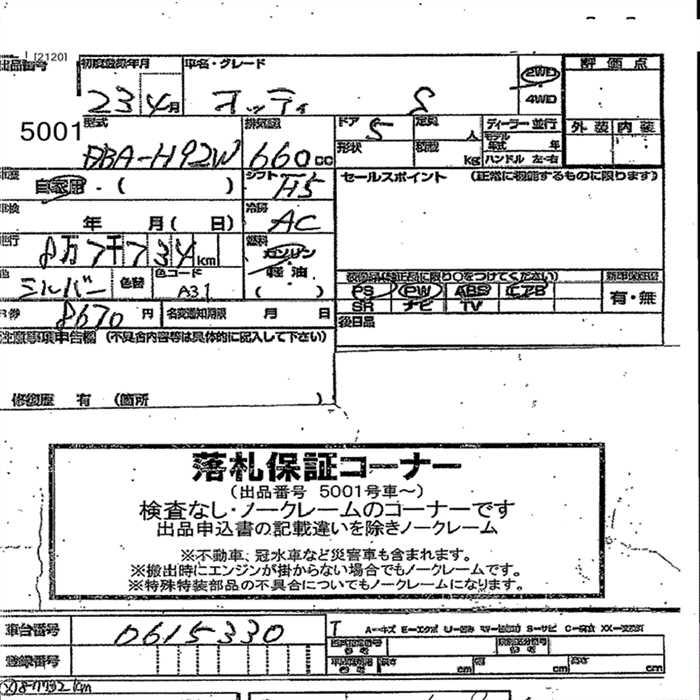 [2120]
出品番号 初度登録年月 車名・グレード 2WD 評価点
23年4月 オッティ S 4WD
5001 型式 排気量 ドア 5 定員 人 ディーラー 並行 外装 内装
DBA-H92W 660cc 形状 積載 kg モデル年式 年 ハンドル 左・右
自家用・( ) シフト H5 セールスポイント (正常に機能するものに限ります)
年 月( 日) 冷房 AC
8万7千734km 燃料 ガソリン
シルバー 色替 色コード A31 軽油 ( )
PS PW ABS エアB 新車保証書
SR ナビ TV 有・無
券 8670円 名変通知期限 月 日 後日品
注意事項申告欄 (不具合内容等は具体的に記入して下さい)
修復歴 有 (箇所 )
落札保証コーナー
(出品番号 5001号車~)
検査なし・ノークレームのコーナーです
出品申込書の記載違いを除きノークレーム
※不動車、冠水車など災害車も含まれます。
※搬出時にエンジンが掛からない場合でもノークレームです。
※特殊特装部品の不具合についてもノークレームになります。
車台番号 0615330
登録番号 長さ cm 幅 cm 高さ cm